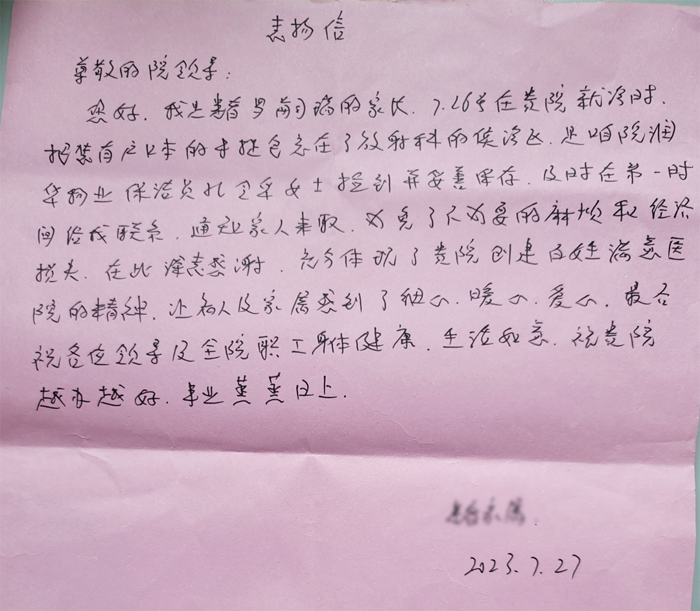 表扬信
尊敬的院领导：
您好。我是患者 的家长，7.26号在贵院就诊时，
把装有户口本的手提包忘在了放射科的候诊区，是咱院润
华物业保洁员孔令采女士捡到并妥善保存，及时在第一时
间给我联系，通知家人来取，为免了不必要的麻烦和经济
损失。在此深表感谢，充分体现了贵院创建百姓满意医
院的精神，让病人及家属感到了细心、暖心、爱心。最后
祝各位领导及全院职工身体健康，生活如意，祝贵院
越办越好，事业蒸蒸日上。
2023.7.27